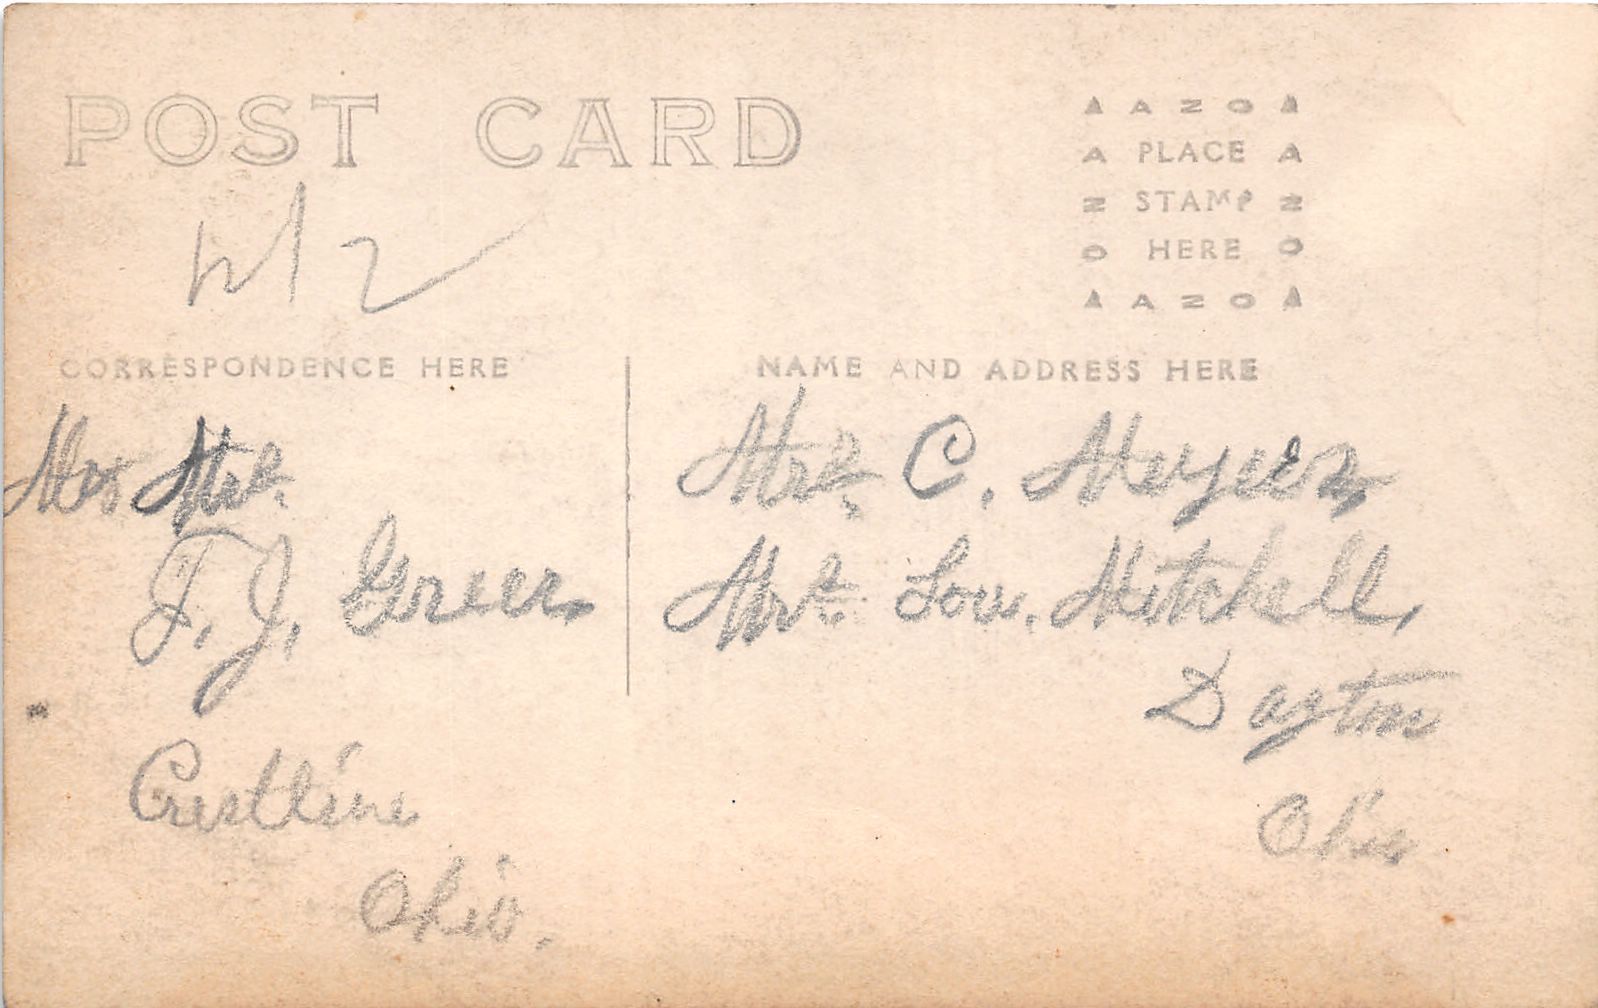 POST CARD
AZO
PLACE
STAMP
HERE
AZO
CORRESPONDENCE HERE
NAME AND ADDRESS HERE
Mrs.
F. J. Green.
Crestline
Ohio.
Mrs. C.
Mrs. Lou. Mitchell.
Dayton
Ohio